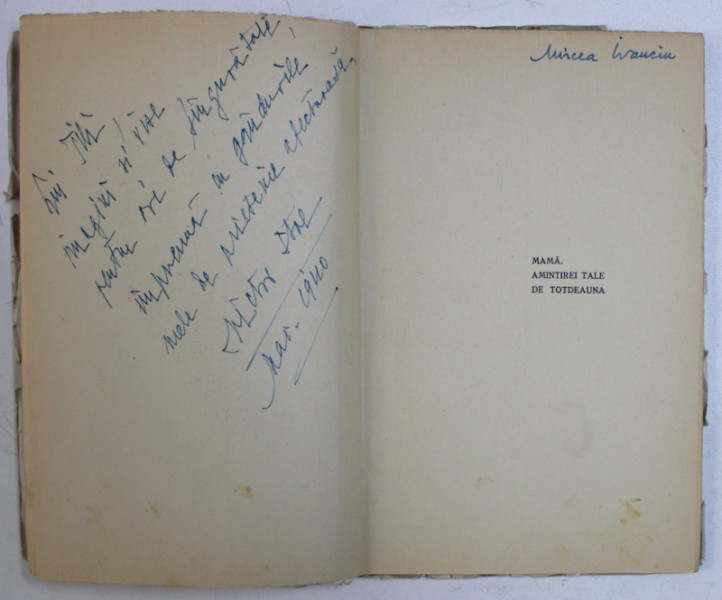 imagini si vise
pentru ore de singurătate,
împreună cu gândurile
mele de prietenie afectuoasă,
Victor Stoe
Mar. 1940
Mircea Ivanciu
MAMĂ,
AMINTIREI TALE
DE TOTDEAUNA